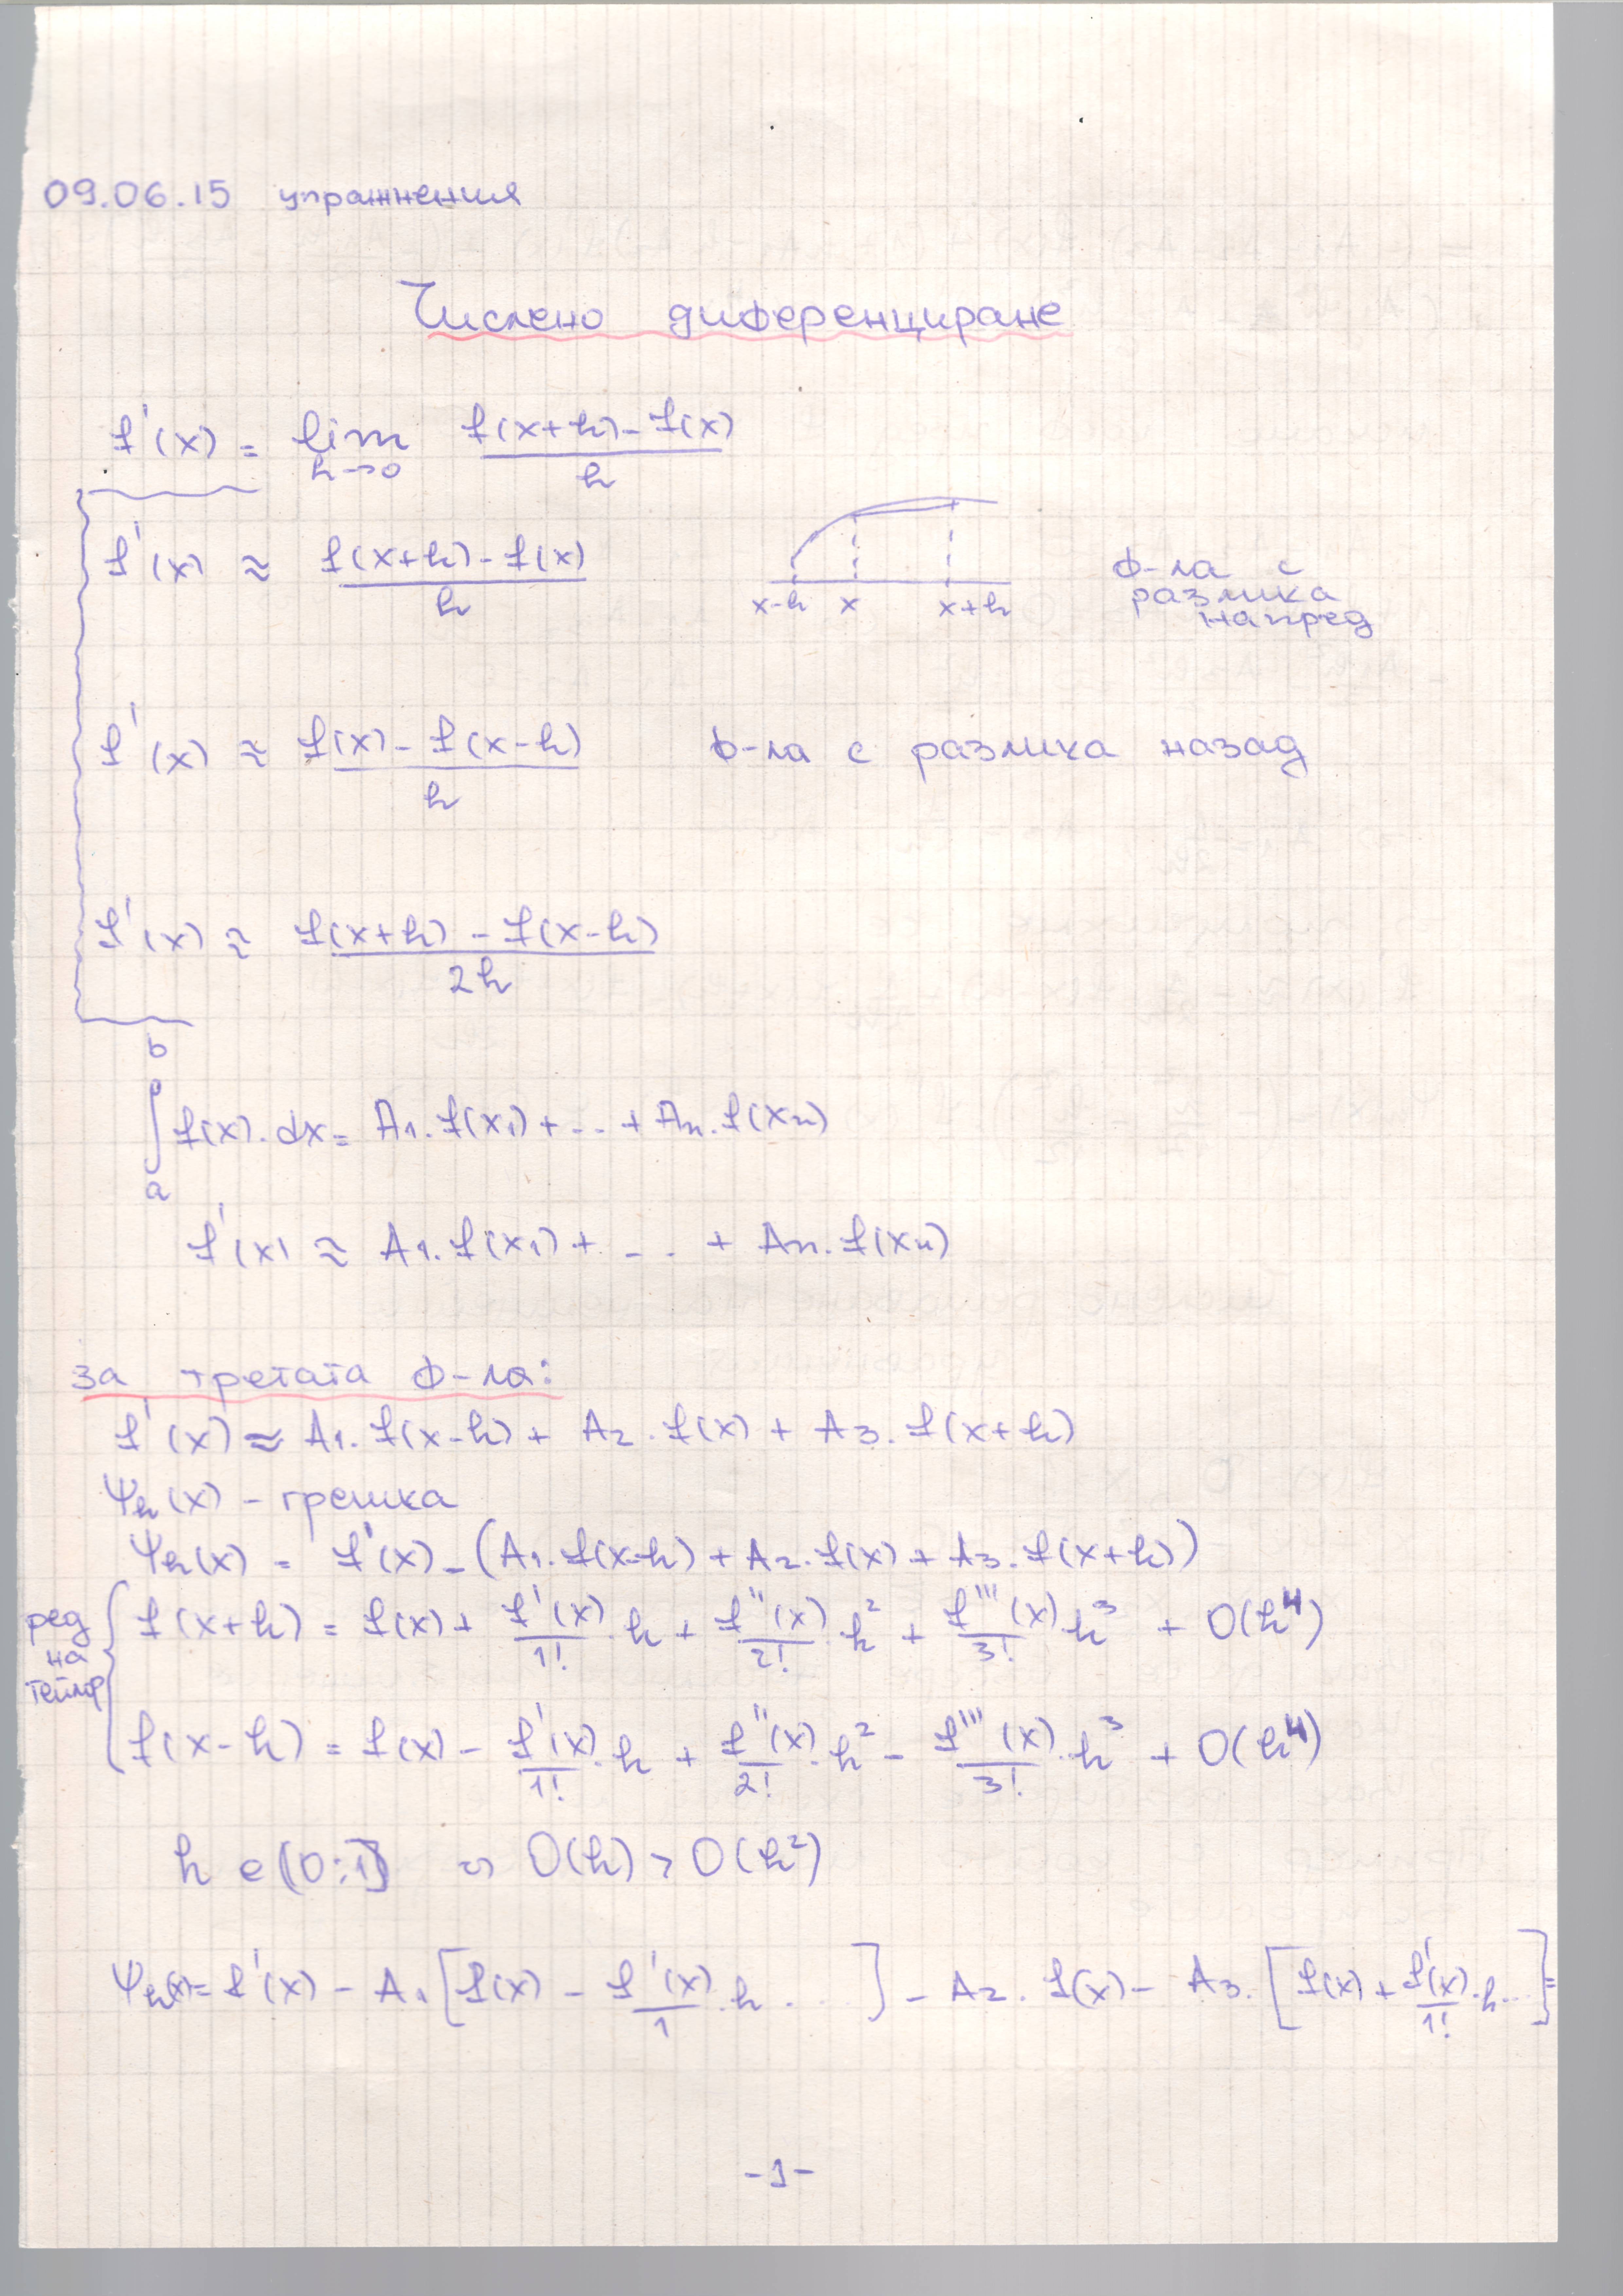 09.06.15 упражнения
Числено диференциране
f'(x) = lim h→0 f(x+h)-f(x) / h
f'(x) ≈ f(x+h)-f(x) / h
x-h x x+h
ф-ла с
разлика
напред
f'(x) ≈ f(x)-f(x-h) / h ф-ла с разлика назад
f'(x) ≈ f(x+h)-f(x-h) / 2h
b
∫ f(x).dx = A1.f(x1)+...+An.f(xn)
a
f'(x) ≈ A1.f(x1)+ ... + An.f(xn)
за третата ф-ла:
f'(x) ≈ A1.f(x-h) + A2.f(x) + A3.f(x+h)
Ψh(x) - грешка
Ψh(x) = f'(x) - (A1.f(x-h) + A2.f(x) + A3.f(x+h))
ред
на
Тейлор
f(x+h) = f(x) + f'(x)/1! .h + f''(x)/2! .h² + f'''(x)/3! .h³ + O(h⁴)
f(x-h) = f(x) - f'(x)/1! .h + f''(x)/2! .h² - f'''(x)/3! .h³ + O(h⁴)
h е (0;1) O(h) > O(h²)
Ψh(x) = f'(x) - A1[f(x) - f'(x)/1 .h ...] - A2.f(x) - A3.[f(x) + f'(x)/1! .h...] =
-1-